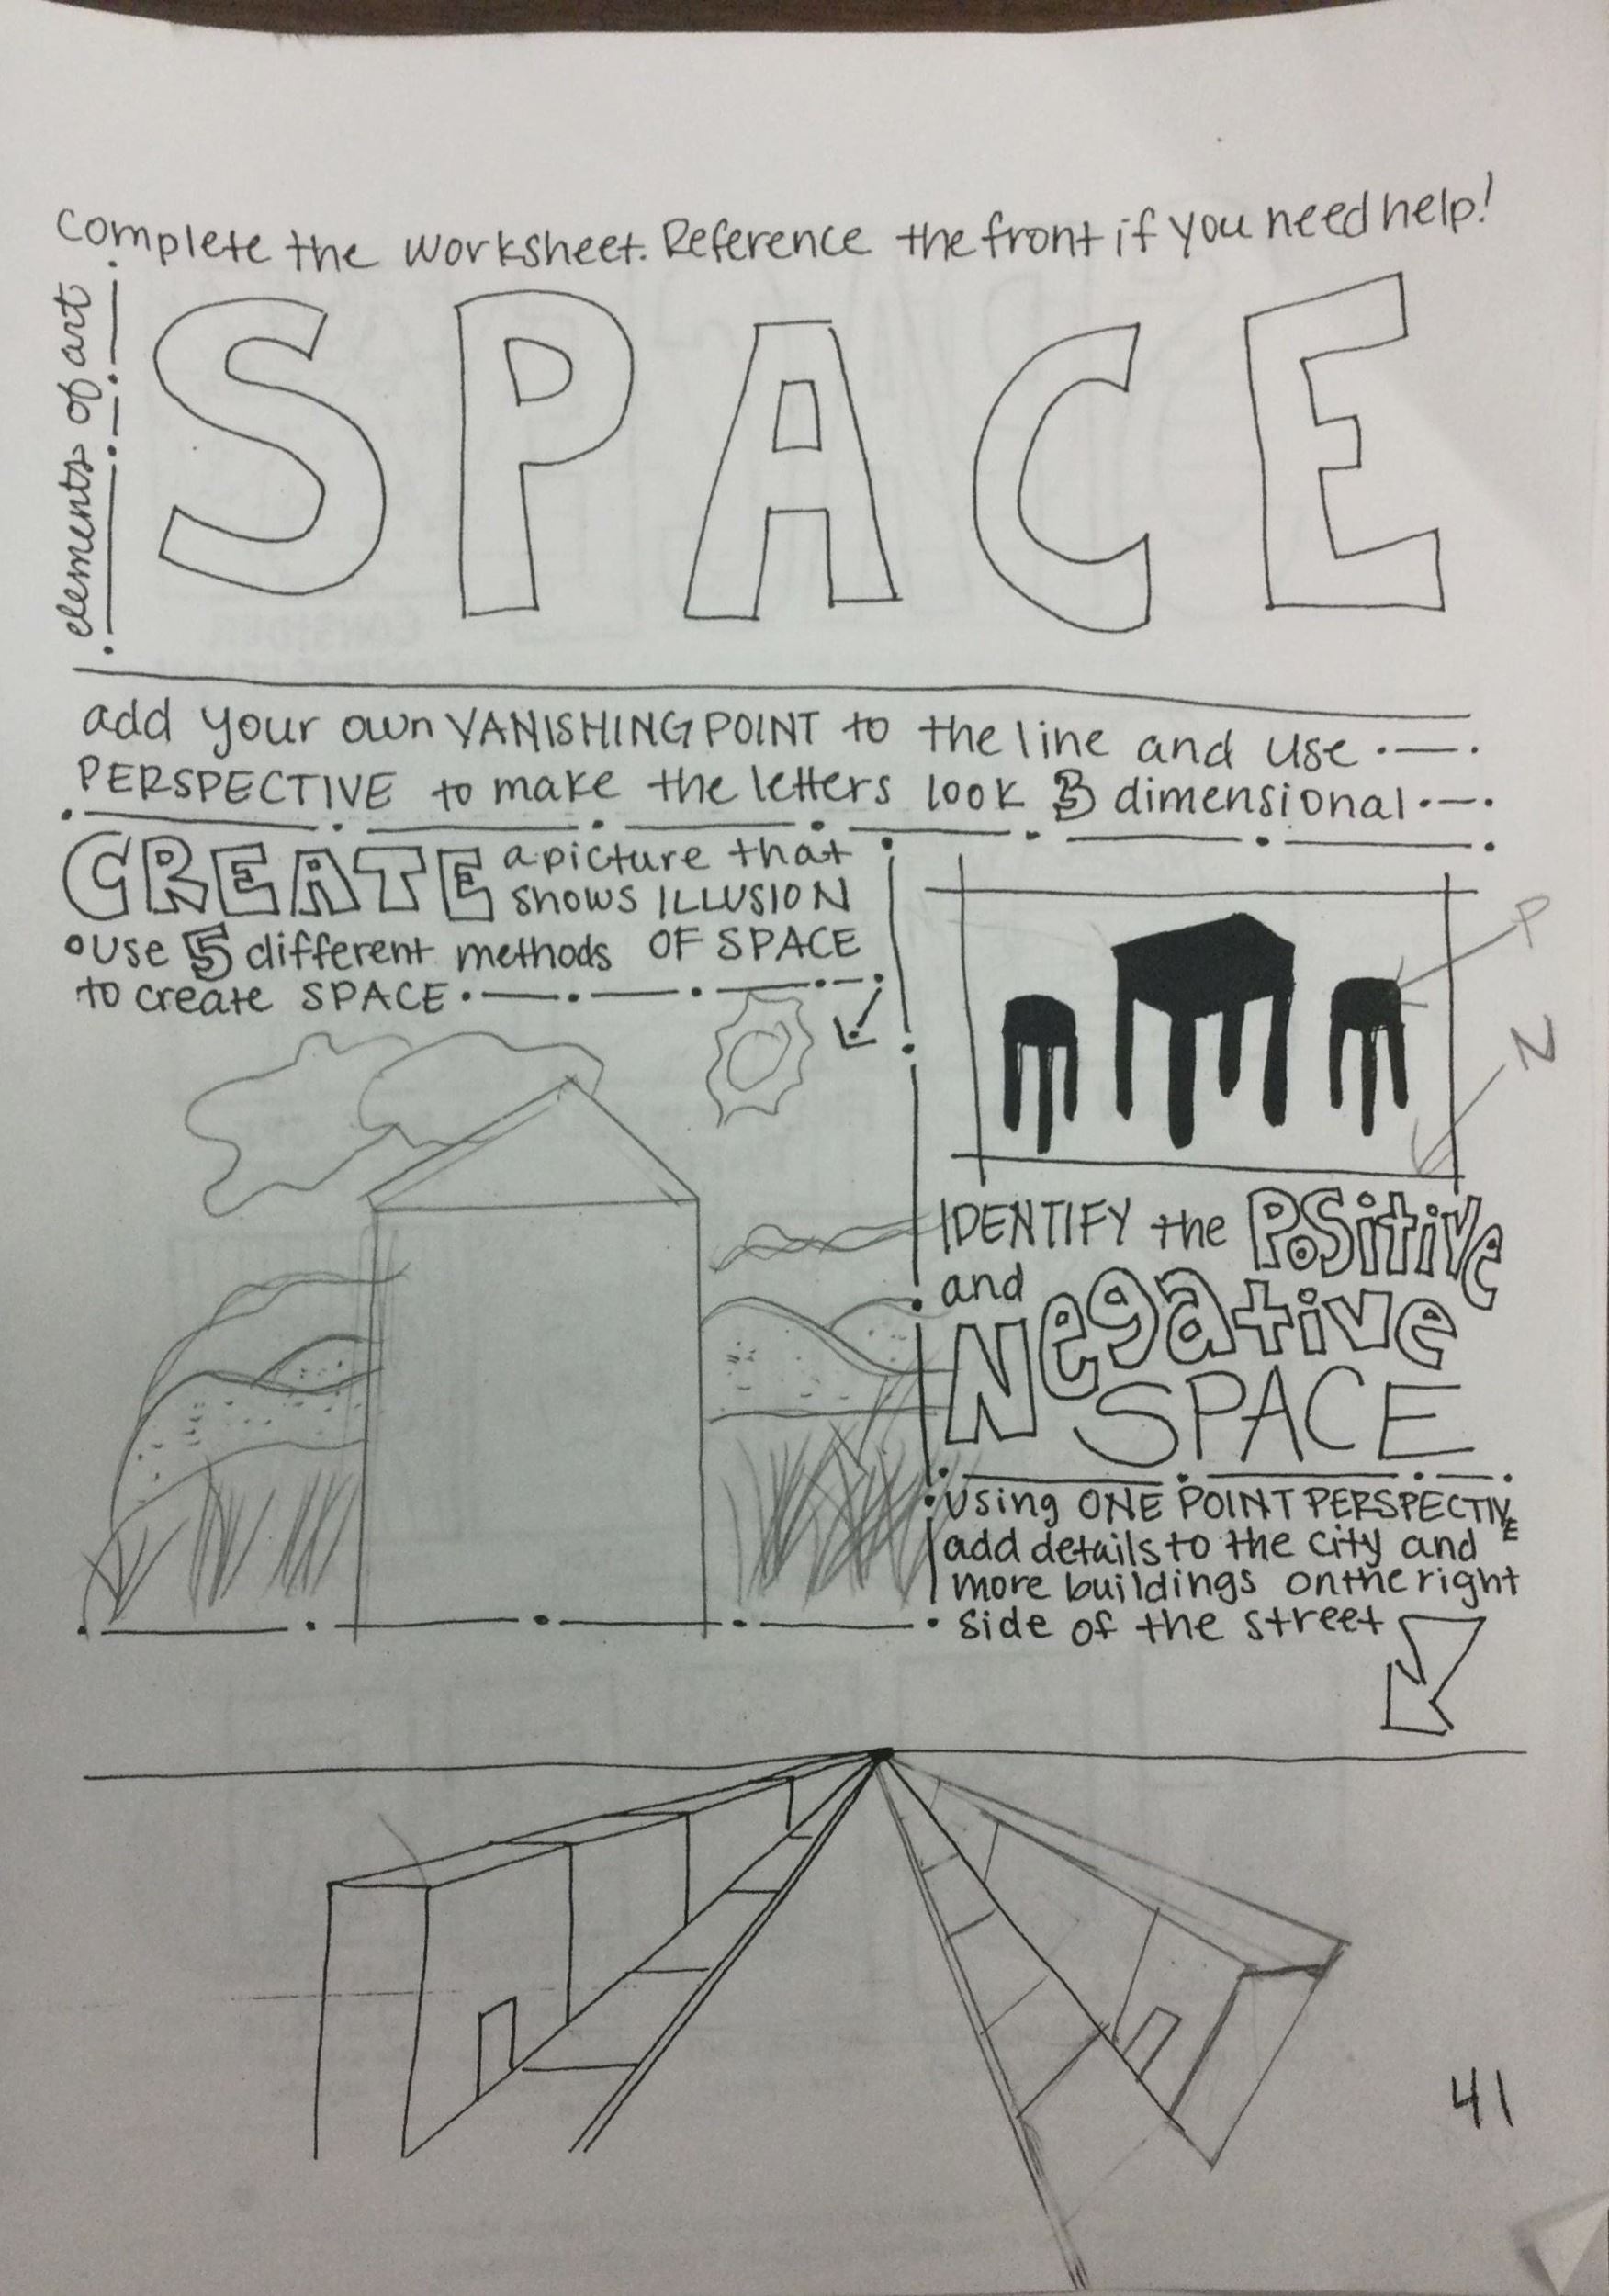 complete the worksheet. Reference the front if you need help!
elements of art
SPACE
add your own VANISHING POINT to the line and use
PERSPECTIVE to make the letters look 3 dimensional
CREATE a picture that
shows ILLUSION
OF SPACE
use 5 different methods
to create SPACE
P
N
IDENTIFY the Positive
and
Negative
SPACE
using ONE POINT PERSPECTIVE
add details to the city and
more buildings on the right
side of the street
41